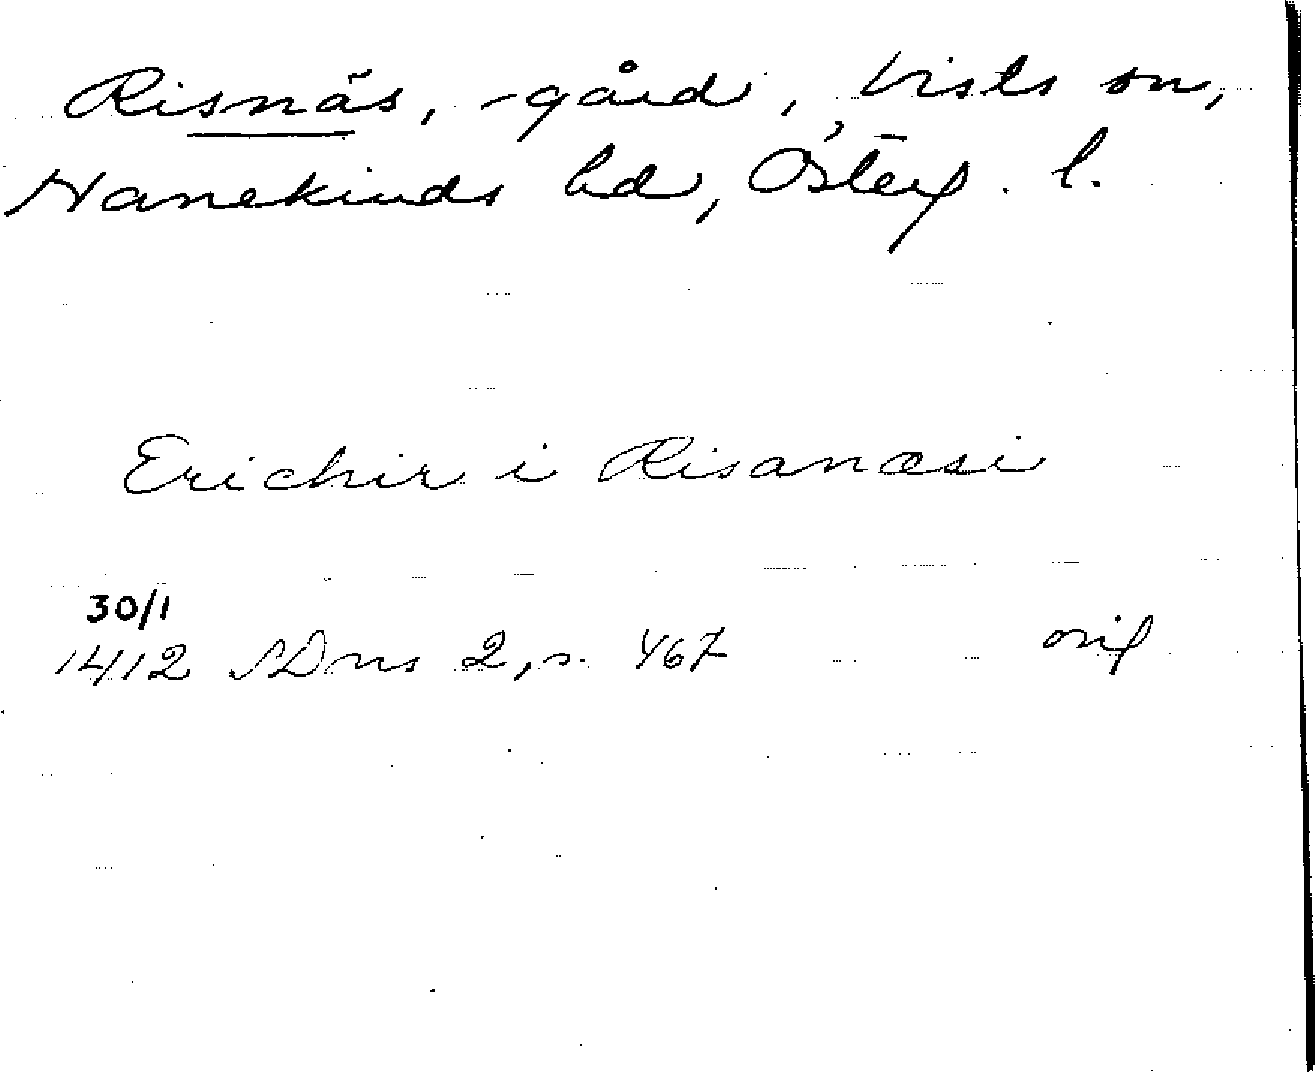 Risnäs, -gård, Vists sn,
Hanekinds hd, Österg. l.
Erichir i Risanæsi
30/1
1412 SDns 2, s. 467 orig